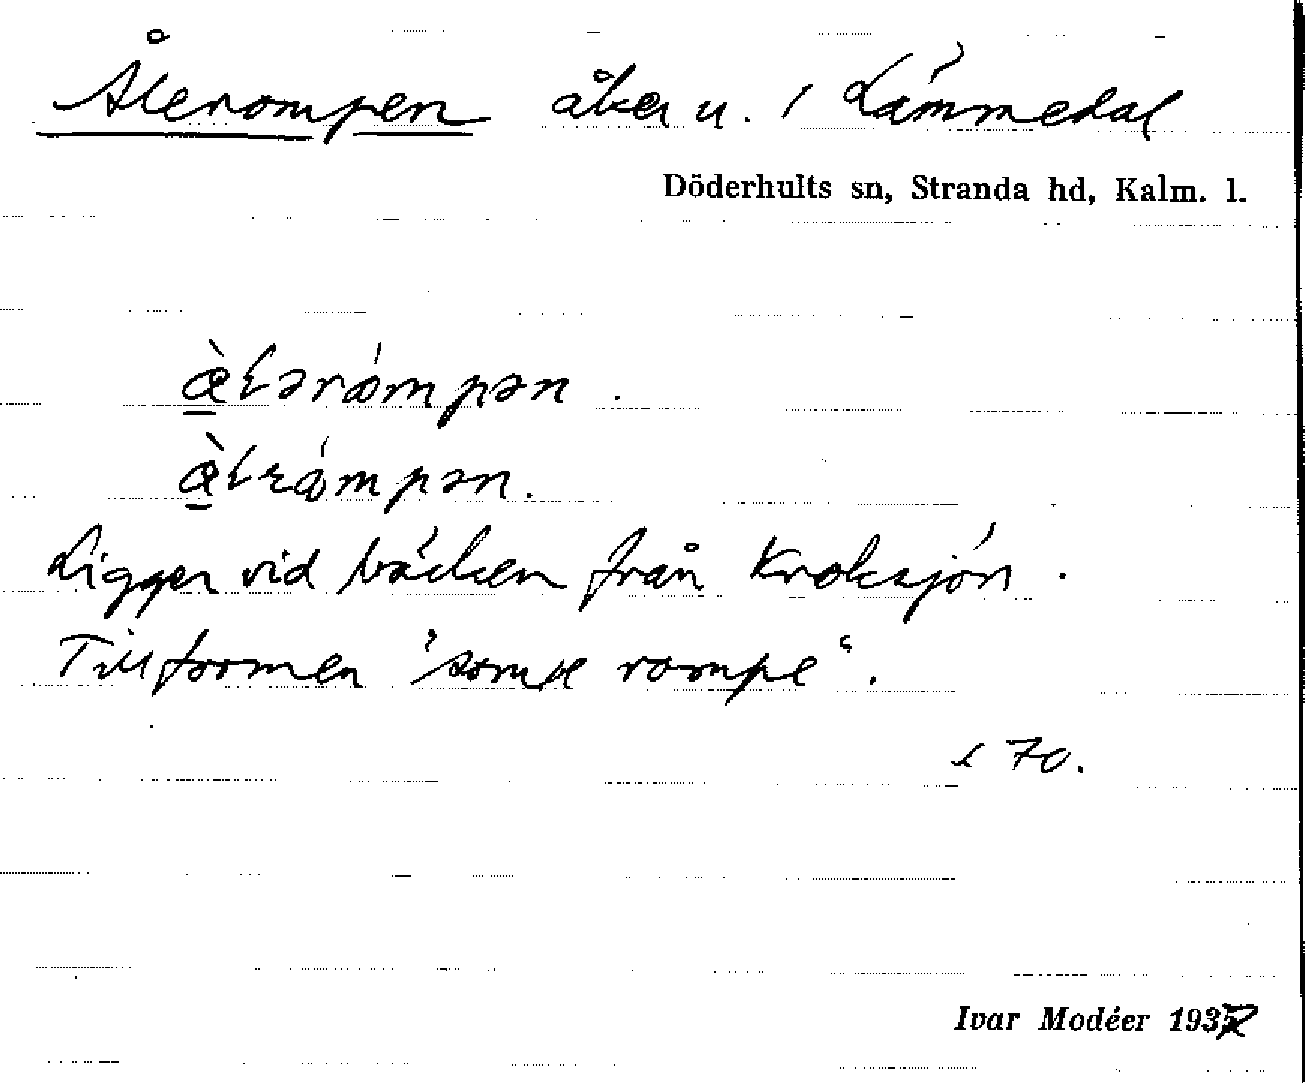 Ålerompen åker u. 1 Lämmedal
Döderhults sn, Stranda hd, Kalm. l.
Ligger vid bäcken från Kroksjön.
Till formen "som e rompe".
s 70.
Ivar Modéer 1937